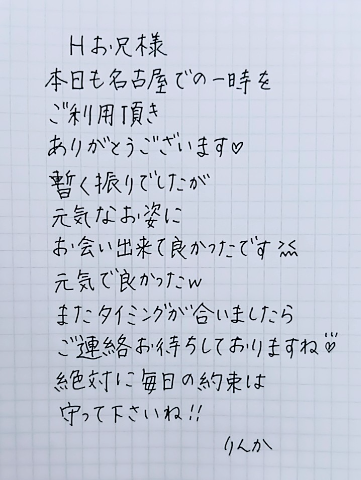 Hお兄様
本日も名古屋での一時を
ご利用頂き
ありがとうございます♡
暫く振りでしたが
元気なお姿に
お会い出来て良かったです
元気で良かったw
またタイミングが合いましたら
ご連絡お待ちしておりますね♡
絶対に毎日の約束は
守って下さいね!!
りんか